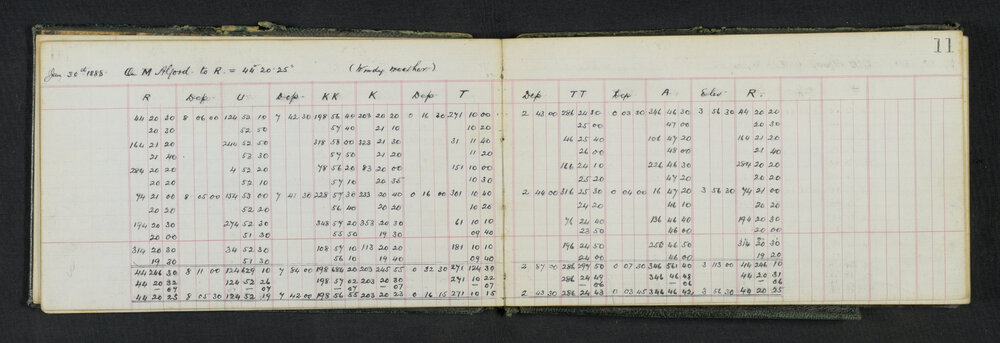 11
Jan 30th 1888. On M Alford to R = 44° 20' 25" (Windy weather)
R Dep U Dep KK K Dep T Dep TT Dep A Elev R.
44 20 20 8 06 00 124 52 10 7 42 30 198 56 40 203 20 20 0 16 30 271 10 00 2 43 00 286 24 30 0 03 30 346 46 30 3 56 30 44 20 20
20 30 52 50 57 40 21 10 10 20 25 00 47 00 20 30
164 21 20 244 52 50 318 58 00 323 21 30 31 11 40 46 25 40 106 47 20 164 21 20
21 40 53 30 57 50 21 20 11 20 26 00 48 00 21 40
284 20 20 4 52 20 78 56 20 83 20 00 151 10 00 166 24 10 226 46 30 284 20 20
20 20 52 10 57 10 20 35 10 30 25 20 47 20 20 20
74 21 00 8 05 00 154 53 00 7 41 30 228 57 30 233 20 40 0 16 00 301 10 40 2 44 00 316 25 30 0 04 00 16 47 20 3 56 30 74 21 00
20 20 52 20 56 40 20 20 10 20 24 20 46 10 20 20
194 20 30 274 52 30 348 57 20 353 20 30 61 10 10 76 24 40 136 46 40 194 20 30
20 00 51 30 55 50 19 30 09 40 23 50 46 00 20 00
314 20 30 34 52 30 108 57 10 113 20 20 181 10 10 196 24 50 256 46 50 314 20 30
19 30 51 30 56 10 19 40 09 40 24 00 46 00 19 20
44 246 30 8 11 00 124 629 10 7 84 00 198 684 20 203 245 55 0 32 30 271 124 30 2 87 00 286 297 50 0 07 30 346 561 40 3 113 00 44 246 10
44 20 32 124 52 26 198 57 02 203 20 30 271 10 22 286 24 49 346 46 48 44 20 31
— 07 — 07 — 07 — 07 — 07 — 06 — 06 — 06
44 20 25 8 05 30 124 52 19 7 42 00 198 56 55 203 20 23 0 16 15 271 10 15 2 43 30 286 24 43 0 03 45 346 46 42 3 56 30 44 20 25